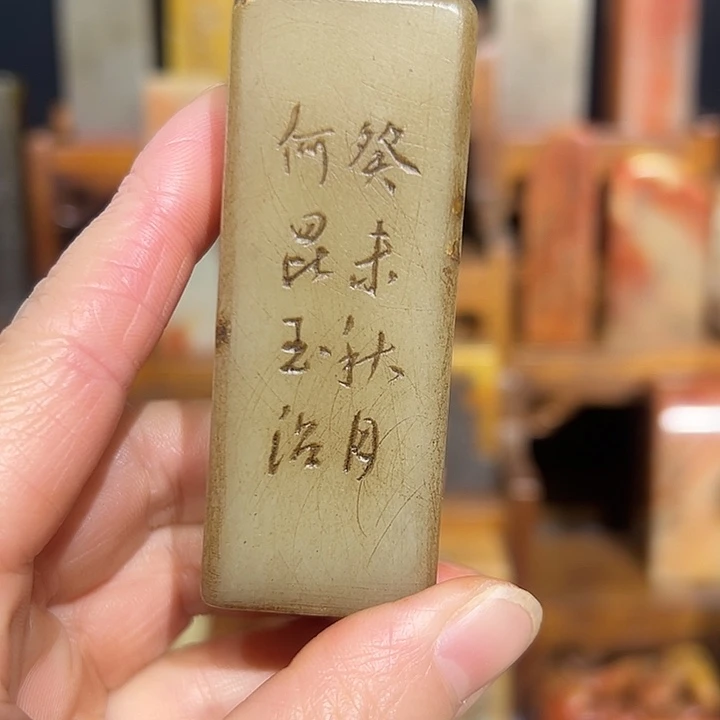 癸未秋月
何昆玉治